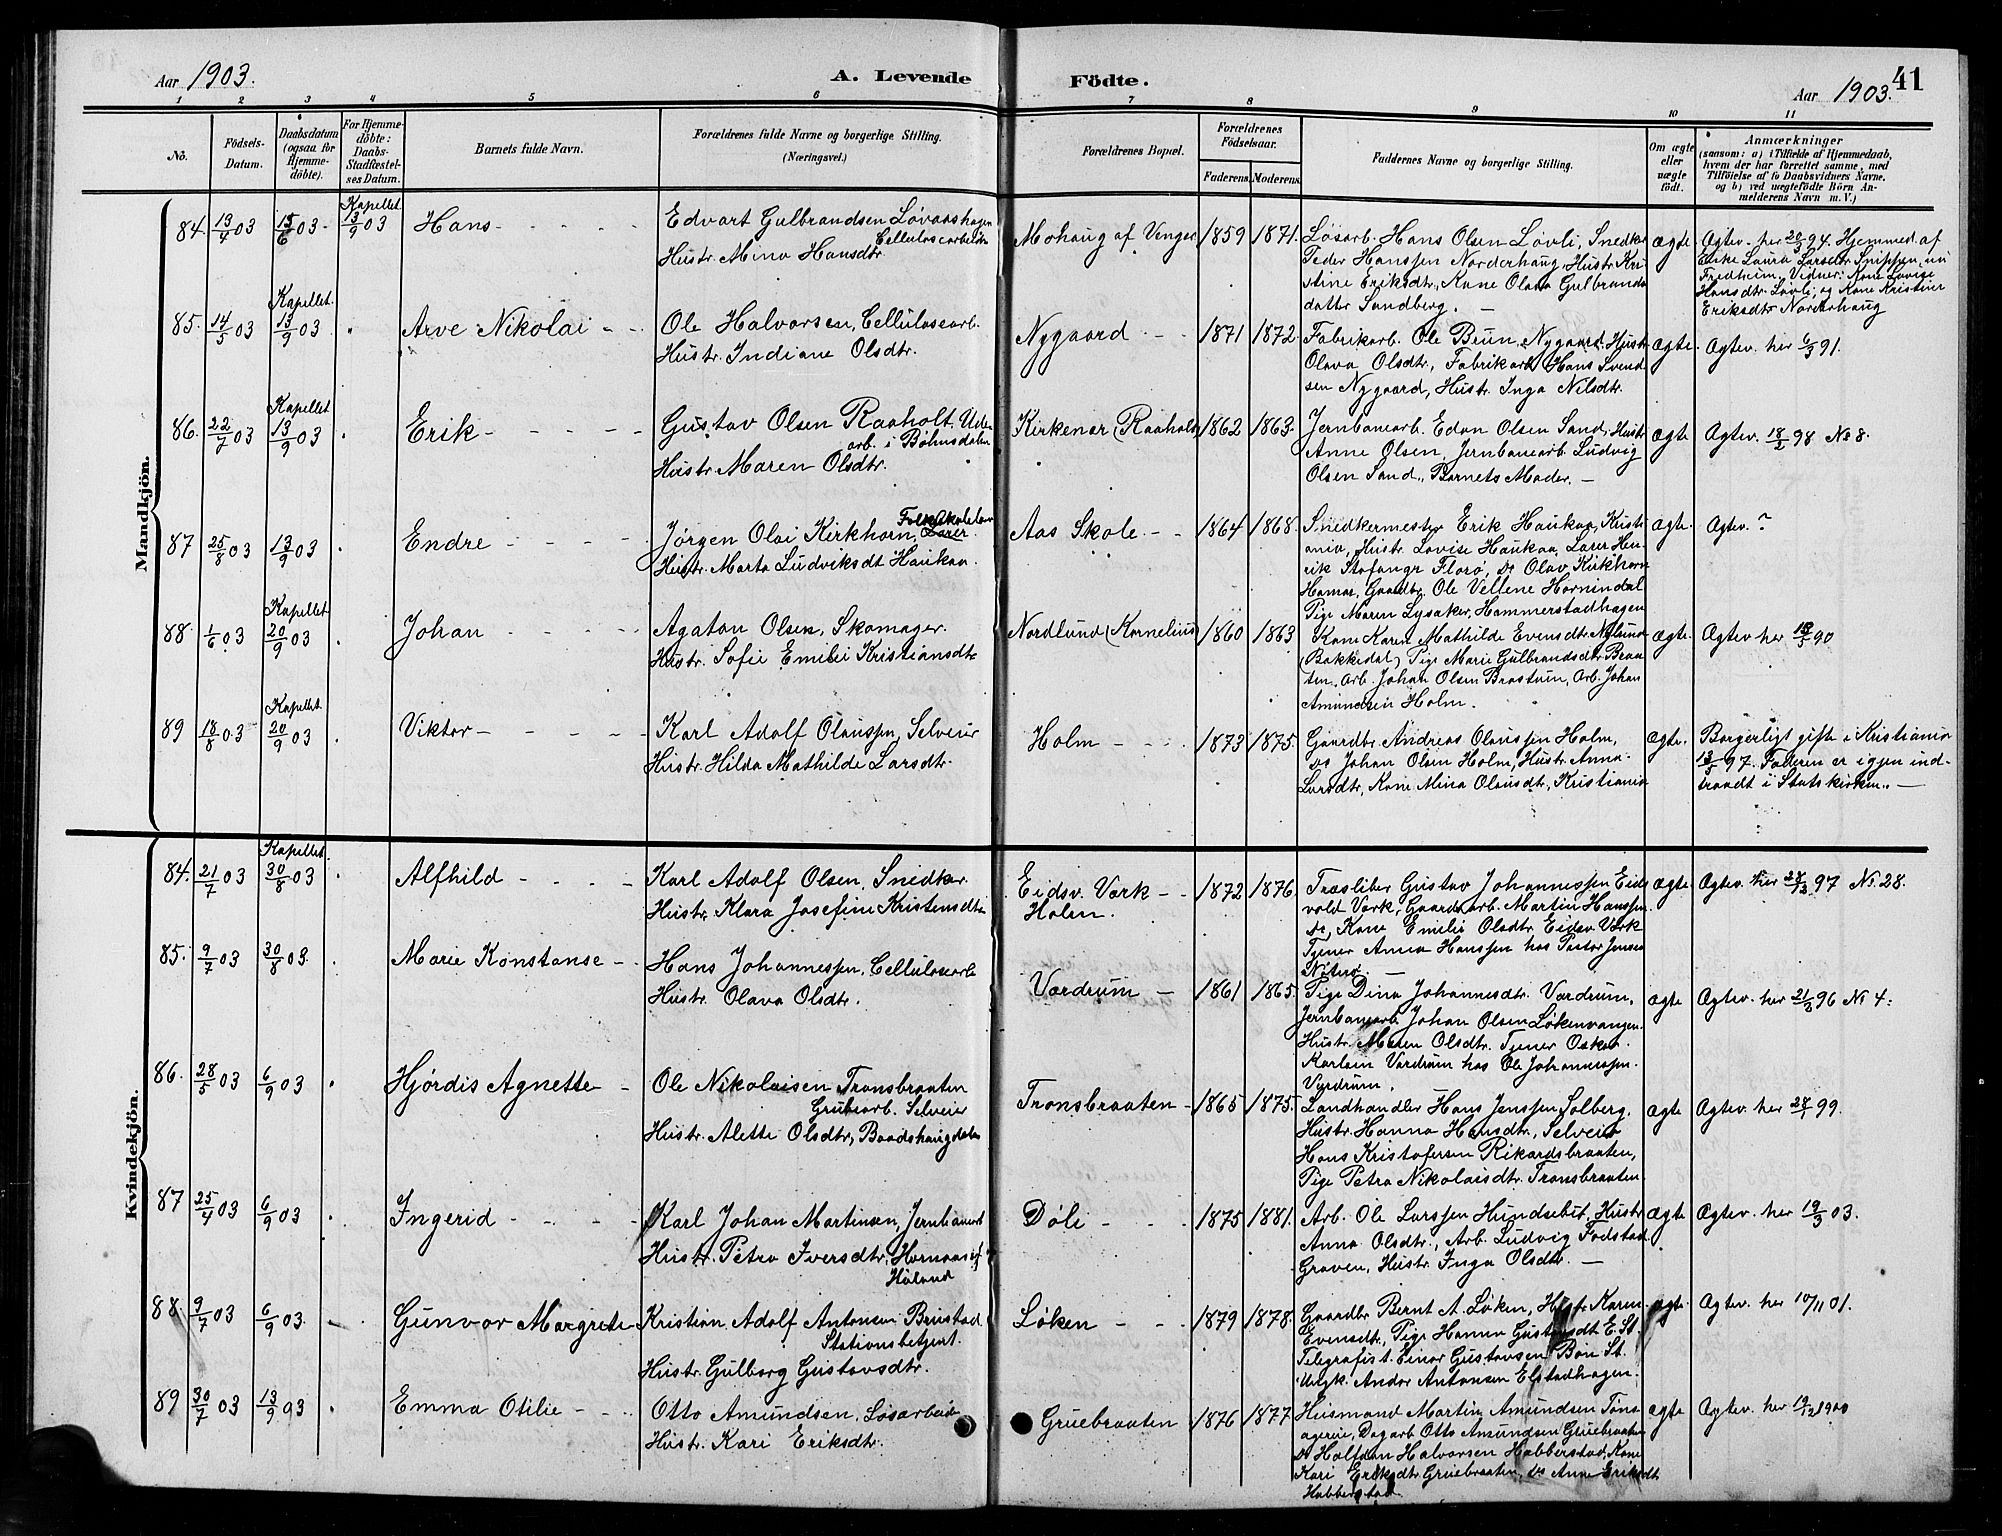 Aar 1903.
A. Levende Födte.
Aar 1903.
41
1 2 3 4 5 6 7 8 9 10 11
No.
Födsels-
Datum.
Daabsdatum
(ogsaa for
Hjemme-
döbte).
For Hjemme-
döbte:
Daabs-
Stadfæstel-
ses Datum.
Barnets fulde Navn.
Forældrenes fulde Navne og borgerlige Stilling.
(Næringsvei.)
Forældrenes Bopæl.
Forældrenes
Födselsaar.
Faderens. Moderens.
Faddernes Navne og borgerlige Stilling.
Om ægte
eller
uægte
födt.
Anmærkninger
(saasom: a) i Tilfælde af Hjemmedaab,
hvem der har forrettet samme, med
Tilföielse af to Daabsvidners Navne.
og b) ved uægtefödte Börn An-
melderens Navn m. V.)
Mandkjön.
84. 19/4 03 15/6 03 Kapellet 13/9 03 Hans
Edvart Gulbrandsen Løvaashagen
Cellulosearbeider
Hustr. Mina Hansdtr.
Mohaug af Venger 1859 1871.
Løsarb. Hans Olsen Løvli, Snedker
Peder Hanssen Norderhaug, Hustr. Kri-
stine Eriksdtr., Kone Olava Gulbrands
datter Sandberg.
ægte
Ægtev. her 20/3 94. Hjemmed. af
Enke Laura Larsdtr Snippen, nu
Fredheim. Vidner: Kone Lovise
Hansdtr. Løvli, og Kone Kristine
Eriksdtr Norderhaug
85. 14/5 03 Kapellet 13/9 03 Arve Nikolai
Ole Halvorsen, Cellulosearb.
Hustr. Indiane Olsdtr.
Nygaard 1871 1872
Fabrikarb. Ole Brun, Nygaard, Hustr
Olava Olsdtr., Fabrikarb. Hans Svend
sen Nygaard, Hustr. Inga Nilsdtr.
ægte. Ægtev. her 6/3 91.
86. 22/7 03 Kapellet 13/9 03 Erik
Gustav Olsen Raaholt, Ude-
arb. i Bøhnsdalen
Hustr. Maren Olsdtr.
Kirkenær (Raaholt) 1862 1863.
Jernbanearb. Edvan Olsen Sand, Hustr
Anne Olsen, Jernbanearb. Ludvig
Olsen Sand., Barnets Moder.
ægte Ægtev. 18/2 98 No 8.
87 25/8 03 13/9 03 Endre
Jørgen Olai Kirkhorn, Lærer.
Hustr. Marta Ludviksdt Haukaa.
Aas Skole 1864 1868.
Snedkermester Erik Haukaa, Kristi
ania, Hustr. Lovise Haukaa, Lærer Hen-
rik Stafangr Florø, Do Olav Kirkhorn
Hamar, Gaardbr. Ole Vellene Hornindal
Pige Maren Lysaker, Hammerstadhagen
ægte. Ægtev. ?
88 1/6 03 Kapellet 20/9 03 Johan
Agaton Olsen, Skomager.
Hustr. Sofie Emilie Kristiansdtr
Nordlund (Kornelius) 1860 1863
Kone Karen Mathilde Evensdtr. Nylund
(Bakkedal) Pige Marie Gulbrandsdtr. Braa-
ten, Arb. Johan Olsen Brostuen, Arb. Johan
Amundsen Holm.
ægte. Ægtev her 90
89 18/8 03 Kapellet. 20/9 03 Viktor
Karl Adolf Olaussen, Selveier
Hustr. Hilda Mathilde Larsdtr.
Holm 1873 1875.
Gaardbr. Andreas Olaussen Holm,
Do Johan Olsen Holm, Hustr. Anna
Larsdtr, Kone Mina Olausdtr, Kristiania
ægte.
Borgerligt gifte i Kristiania
13/5 97. Faderen er igjen ind-
traadt i Statskirken.
Kvindekjön.
84. 21/7 03 Kapellet 30/8 03 Alfhild
Karl Adolf Olsen, Snedker.
Hustr. Klara Josefine Kristensdtr
Eidsv. Værk
Holm. 1872 1876
Træsliber Gustav Johannessen Eids
vold Værk, Gaardsarb. Martin Hanssen
Do, Kone Emilie Olsdtr. Eidsv. Værk
Tjener Anna Hanssen hos Pastor Jensen
ægte Ægtev. her 97 No. 28.
85. 9/7 03 30/8 03. Marie Konstanse
Hans Johannessen, Cellulosearb.
Hustr. Olava Olsdtr.
Vardrum 1861 1865.
Pige Dina Johannesdtr. Vardrum,
Jernbanearb. Johan Olsen Løkenvangen
Hustr. Maren Olsdtr. Tjener Oskar
Karlsen Vardrum hos Ole Johannessen.
Vardrum.
ægte Ægtev. her 21/3 96 No 4.
86. 28/5 03 6/9 03 Hjørdis Agnette
Ole Nikolaisen Tronsbraaten
Grubearb. Selveier
Hustr. Alette Olsdtr, Baadshaugdalen
Tronsbraaten 1865 1875.
Landhandler Hans Jenssen Solberg,
Hustr. Hanna Hansdtr, Selveier
Hans Kristofersen Rikardsbraaten,
Pige Petra Nikolaisdtr. Tronsbraaten
ægte Ægtev. her 99.
87 25/4 03 6/9 03 Ingerid
Karl Johan Martinsen, Jernbanearb
Hustr. Petra Iversdtr, Hornaas i
Høland
Døli 1875 1881.
Arb. Ole Larssen Hundsebut, Hustr
Anna Olsdtr., Arb. Ludvig Fodstad
Graven, Hustr. Inga Olsdtr.
ægte Ægtev. her 19/3 03.
88 9/7 03 6/9 03 Gunvor Margrete
Kristian Adolf Antonsen Brustad
Stationsbetjent.
Hustr. Gulborg Gustavsdtr.
Løken 1879 1878.
Gaardbr Bernt A. Løken, Hustr. Karen
Evensdtr, Pige Hanna Gustavsdt E. St.
Telegrafist. Einar Gustavsen Bøn St.
Ungk. Andor Antonsen Elstadhagen.
ægte. Ægtev. her 10/11 01.
89 30/7 03 13/9 03 Emma Otilie
Otto Amundsen, Løsarbeider
Hustr. Kari Eriksdtr.
Gruebraaten 1876 1877
Husmand Martin Amundsen Tøns-
agereie, Dagarb Otto Amundsen Gruebraaten
Do Halfdan Halvorsen Habberstad, Kone
Kari Eriksdtr Gruebraaten, Do Anne Eriksdt
Habberstad.
ægte Ægtev. her 19/12 1900